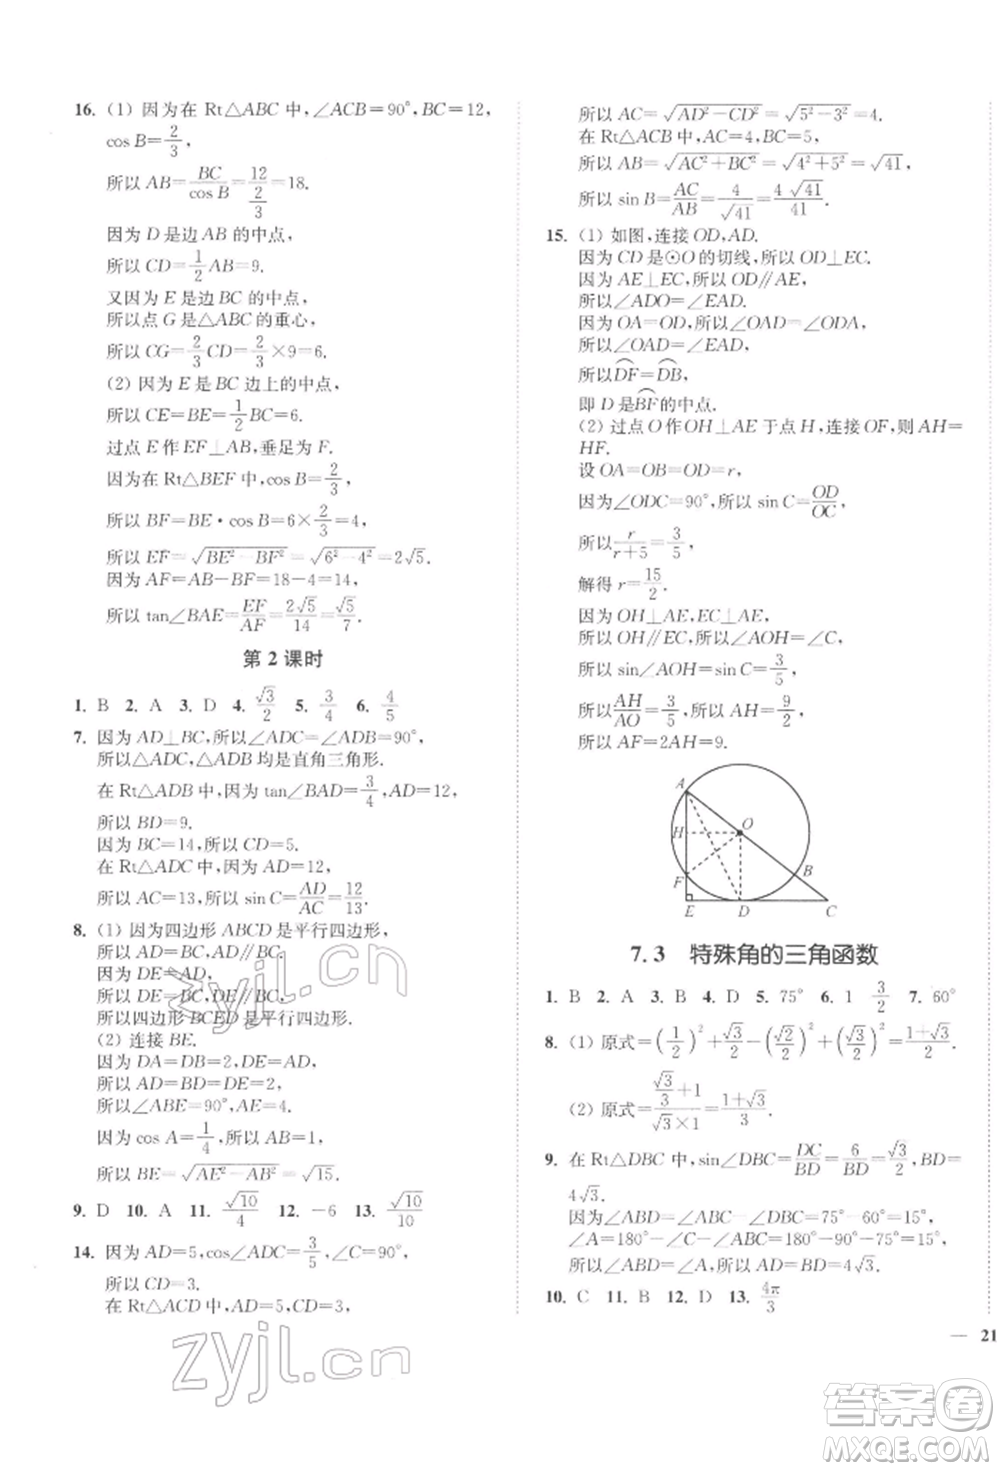 16. (1) 因为在 Rt△ABC 中,∠ACB=90°,BC=12,
cos B=2/3,
所以 AB=BC/cos B=12/(2/3)=18.
因为 D 是边 AB 的中点,
所以 CD=1/2 AB=9.
又因为 E 是边 BC 的中点,
所以点 G 是△ABC 的重心,
所以 CG=2/3 CD=2/3×9=6.
(2) 因为 E 是 BC 边上的中点,
所以 CE=BE=1/2 BC=6.
过点 E 作 EF⊥AB,垂足为 F.
因为在 Rt△BEF 中,cos B=2/3,
所以 BF=BE·cos B=6×2/3=4,
所以 EF=√(BE²-BF²)=√(6²-4²)=2√5.
因为 AF=AB-BF=18-4=14,
所以 tan∠BAE=EF/AF=2√5/14=√5/7.
第 2 课时
1. B 2. A 3. D 4. √3/2 5. 3/4 6. 4/5
7. 因为 AD⊥BC,所以∠ADC=∠ADB=90°,
所以△ADC,△ADB 均是直角三角形.
在 Rt△ADB 中,因为 tan∠BAD=3/4,AD=12,
所以 BD=9.
因为 BC=14,所以 CD=5.
在 Rt△ADC 中,因为 AD=12,
所以 AC=13,所以 sin C=AD/AC=12/13.
8. (1) 因为四边形 ABCD 是平行四边形,
所以 AD=BC,AD∥BC.
因为 DE=AD,
所以 DE=BC,DE∥BC,
所以四边形 BCED 是平行四边形.
(2) 连接 BE.
因为 DA=DB=2,DE=AD,
所以 AD=BD=DE=2,
所以∠ABE=90°,AE=4.
因为 cos A=1/4,所以 AB=1,
所以 BE=√(AE²-AB²)=√15.
9. D 10. A 11. √10/4 12. -6 13. √10/10
14. 因为 AD=5,cos∠ADC=3/5,∠C=90°,
所以 CD=3.
在 Rt△ACD 中,AD=5,CD=3,
所以 AC=√(AD²-CD²)=√(5²-3²)=4.
在 Rt△ACB 中,AC=4,BC=5,
所以 AB=√(AC²+BC²)=√(4²+5²)=√41,
所以 sin B=AC/AB=4/√41=4√41/41.
15. (1) 如图,连接 OD,AD.
因为 CD 是⊙O 的切线,所以 OD⊥EC.
因为 AE⊥EC,所以 OD∥AE,
所以∠ADO=∠EAD.
因为 OA=OD,所以∠OAD=∠ODA,
所以∠OAD=∠EAD,
所以⌒DF=⌒DB,
即 D 是⌒BF的中点.
(2) 过点 O 作 OH⊥AE 于点 H,连接 OF,则 AH=
HF.
设 OA=OB=OD=r,
因为∠ODC=90°,所以 sin C=OD/OC,
所以r/(r+5)=3/5,
解得 r=15/2.
因为 OH⊥AE,EC⊥AE,
所以 OH∥EC,所以∠AOH=∠C,
所以 sin∠AOH=sin C=3/5,
所以AH/AO=3/5,所以 AH=9/2,
所以 AF=2AH=9.
A
H
O
F
B
E
D
C
7.3 特殊角的三角函数
1. B 2. A 3. B 4. D 5. 75° 6. 1 3/2 7. 60°
8. (1) 原式=(1/2)²+√3/2-(√2/2)²+(√2/2)²=(1+√3)/2... 
(2) 原式=(√3/3+1)/(√3×1)=(1+√3)/3.
9. 在 Rt△DBC 中,sin∠DBC=DC/BD=6/BD=√3/2,BD=
4√3.
因为∠ABD=∠ABC-∠DBC=75°-60°=15°,
∠A=180°-∠C-∠ABC=180°-90°-75°=15°,
所以∠ABD=∠A,所以 AD=BD=4√3.
10. C 11. B 12. D 13. 4π/3
— 21
zyjl.cn
zyjl.cn
答案卷
MXQE.COM